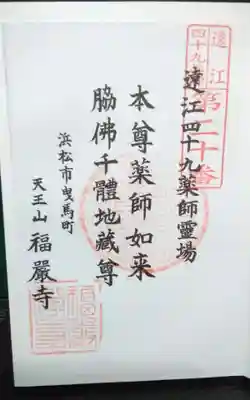 遠江
四十九
第二十番
遠江四十九薬師霊場
本尊薬師如来
脇佛千體地蔵尊
浜松市曳馬町
天王山 福嚴寺